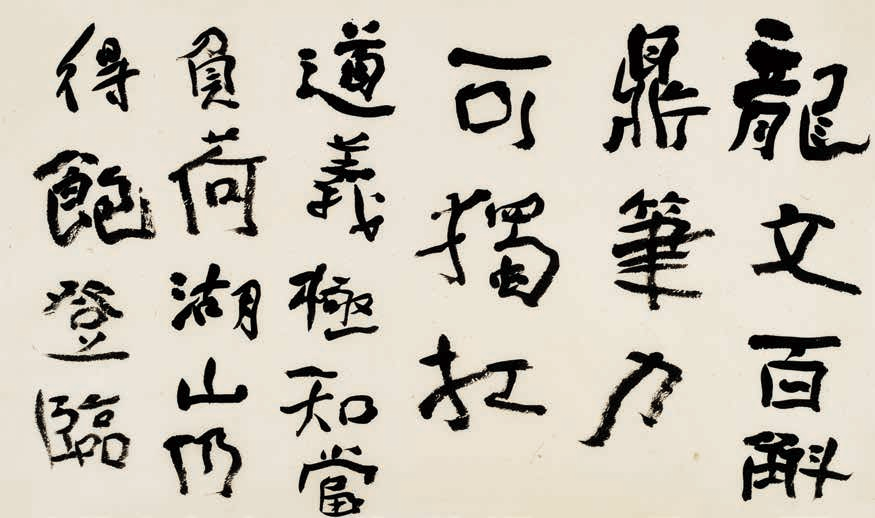 龍文百斛
鼎筆力
可獨扛
道義極知當
負荷湖山仍
得飽登臨